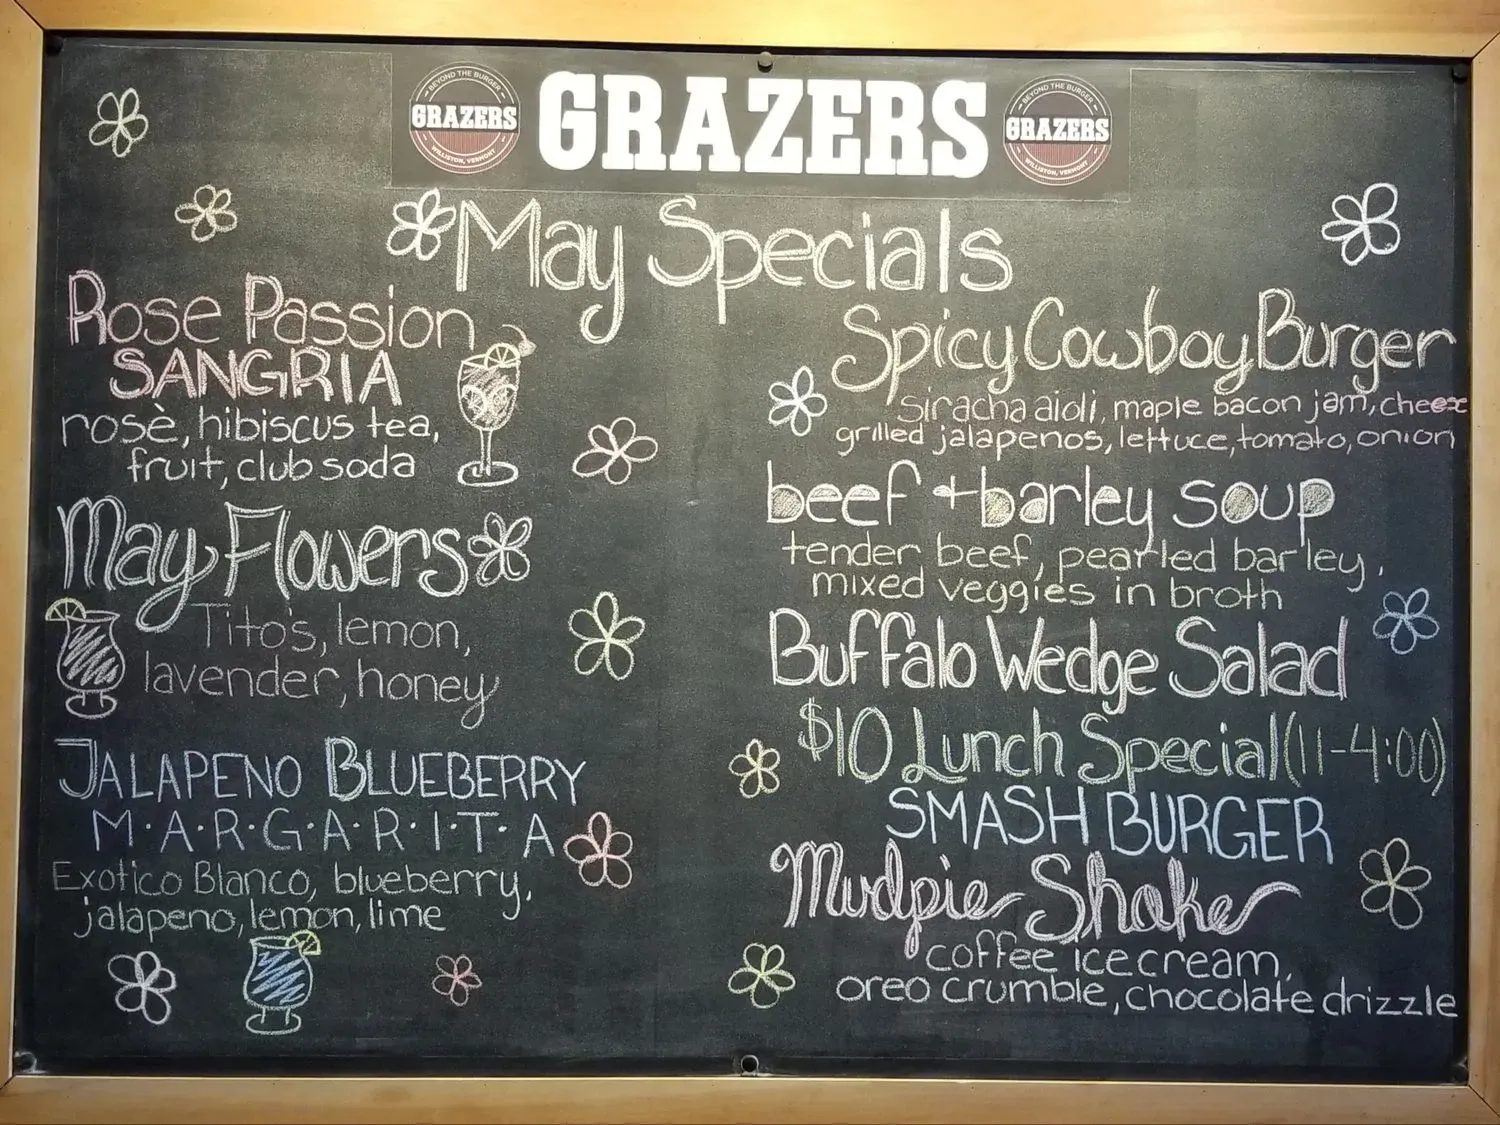 BEYOND THE BURGER
GRAZERS
WILLISTON, VERMONT
GRAZERS
BEYOND THE BURGER
GRAZERS
WILLISTON, VERMONT
May Specials
Rose Passion
SANGRIA
rosè, hibiscus tea,
fruit, club soda
May Flowers
Tito's, lemon,
lavender, honey
JALAPENO BLUEBERRY
M·A·R·G·A·R·I·T·A
Exotico Blanco, blueberry,
jalapeno, lemon, lime
Spicy Cowboy Burger
siracha aioli, maple bacon jam, cheese
grilled jalapenos, lettuce, tomato, onion
beef + barley soup
tender beef, pearled barley,
mixed veggies in broth
Buffalo Wedge Salad
$10 Lunch Special (11-4:00)
SMASH BURGER
Mudpie Shake
coffee ice cream,
oreo crumble, chocolate drizzle